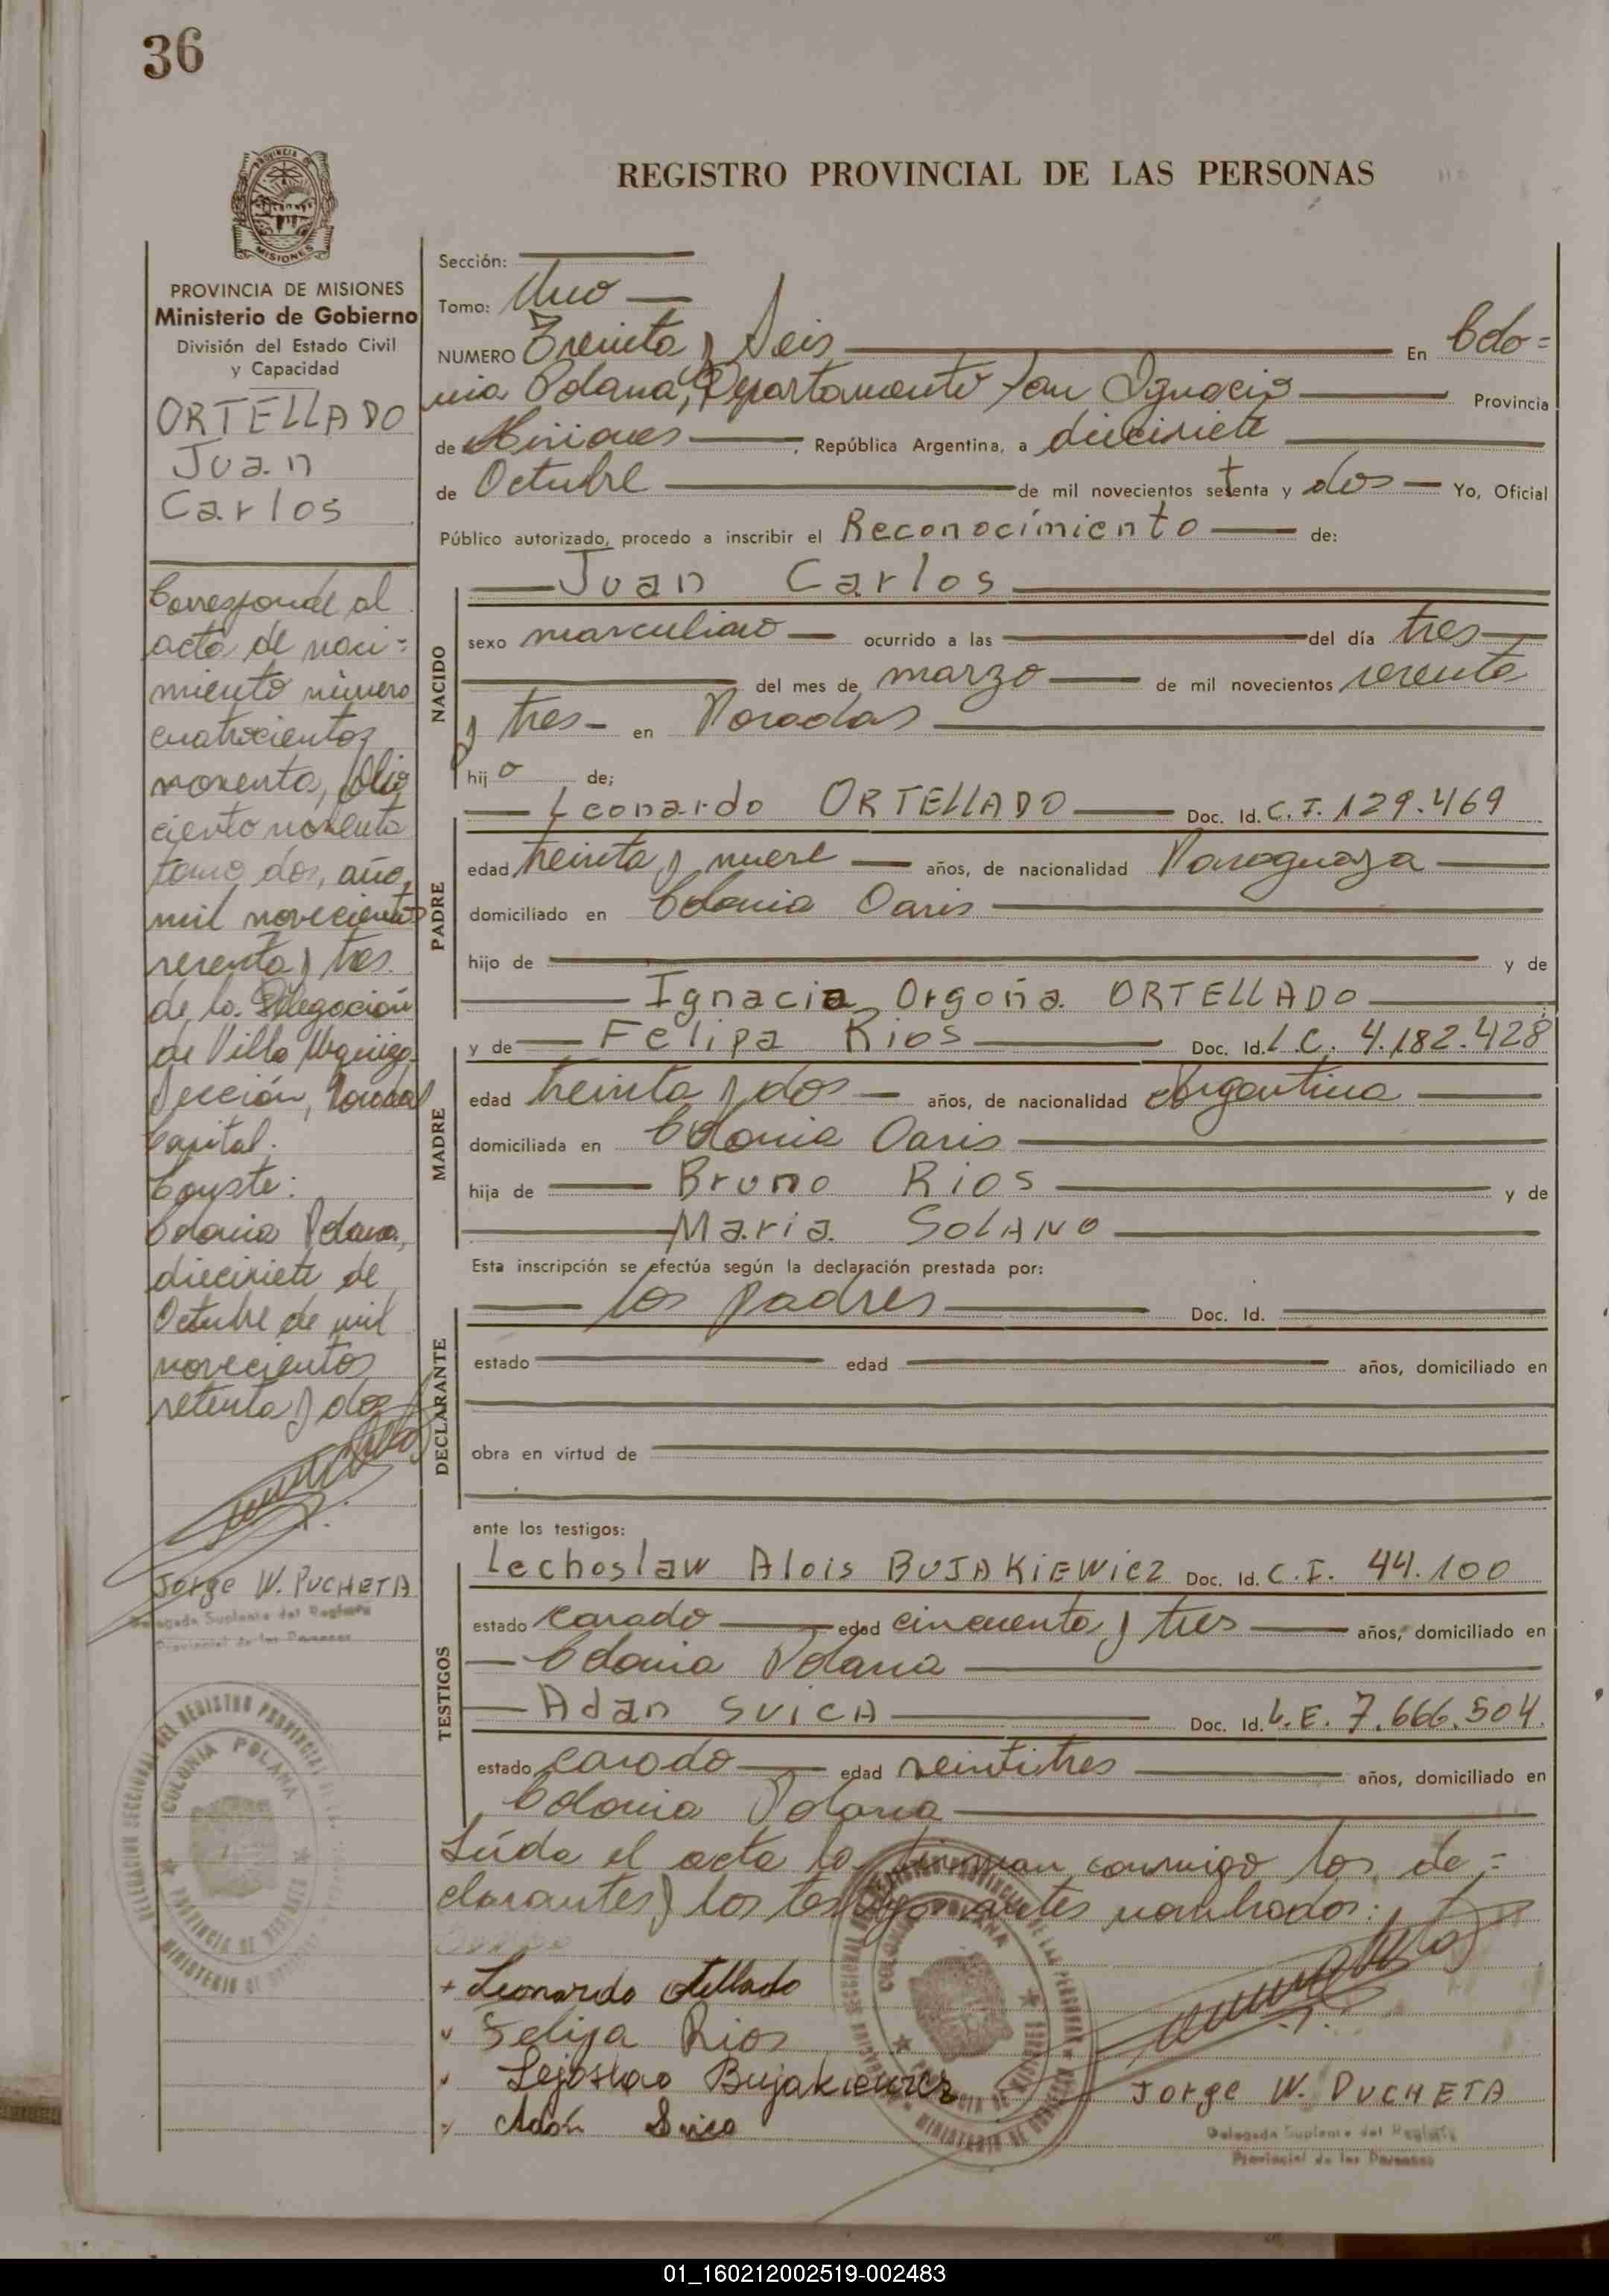 36
REGISTRO PROVINCIAL DE LAS PERSONAS
MISIONES
PROVINCIA DE MISIONES
Ministerio de Gobierno
División del Estado Civil
y Capacidad
ORTELLADO
Juan
Carlos
Corresponde al
acta de naci=
miento número
cuatrocientos
noventa, folio
ciento noventa
tomo dos, año
mil novecientos
sesenta y tres
de la Delegación
de Villa Urquiza,
Sección, Posadas
Capital.
Conste:
Colonia Polana,
diecisiete de
Octubre de mil
novecientos
setenta y dos
Jorge W. PUCHETA
Delegado Suplente del Registro
Provincial de las Personas
COLONIA POLANA
Sección:
Tomo: Uno
NUMERO Treinta y Seis En Colo=
nia Polana, Departamento San Ignacio Provincia
de Misiones, República Argentina, a diecisiete
de Octubre de mil novecientos setenta y dos Yo, Oficial
Público autorizado, procedo a inscribir el Reconocimiento de:
Juan Carlos
NACIDO
sexo masculino ocurrido a las del día tres
del mes de marzo de mil novecientos sesenta
y tres en Posadas
hijo de;
PADRE
Leonardo ORTELLADO Doc. Id. C. I. 129.469
edad treinta y nueve años, de nacionalidad Paraguaya
domiciliado en Colonia Oasis
hijo de y de
Ignacia Orgoña ORTELLADO
MADRE
y de Felipa Rios Doc. Id. L.C. 4.182.428
edad treinta y dos años, de nacionalidad Argentina
domiciliada en Colonia Oasis
hija de Bruno RIOS y de
Maria SOLANO
Esta inscripción se efectúa según la declaración prestada por:
DECLARANTE
los padres Doc. Id.
estado edad años, domiciliado en
obra en virtud de
ante los testigos:
TESTIGOS
Lechoslaw Alois BUJAKIEWICZ Doc. Id. C.I. 44.100
estado casado edad cincuenta y tres años, domiciliado en
Colonia Polana
Adan SVICA Doc. Id. L.E. 7.666.504
estado casado edad veintitres años, domiciliado en
Colonia Polana
Leída el acta la firman conmigo los de=
clarantes y los testigos antes nombrados:
+ Leonardo Ortellado
v Felipa Rios
v Lejoslao Bujakiewicz
v Adán Svica
Jorge W. PUCHETA
Delegado Suplente del Registro
Provincial de las Personas
01_160212002519-002483